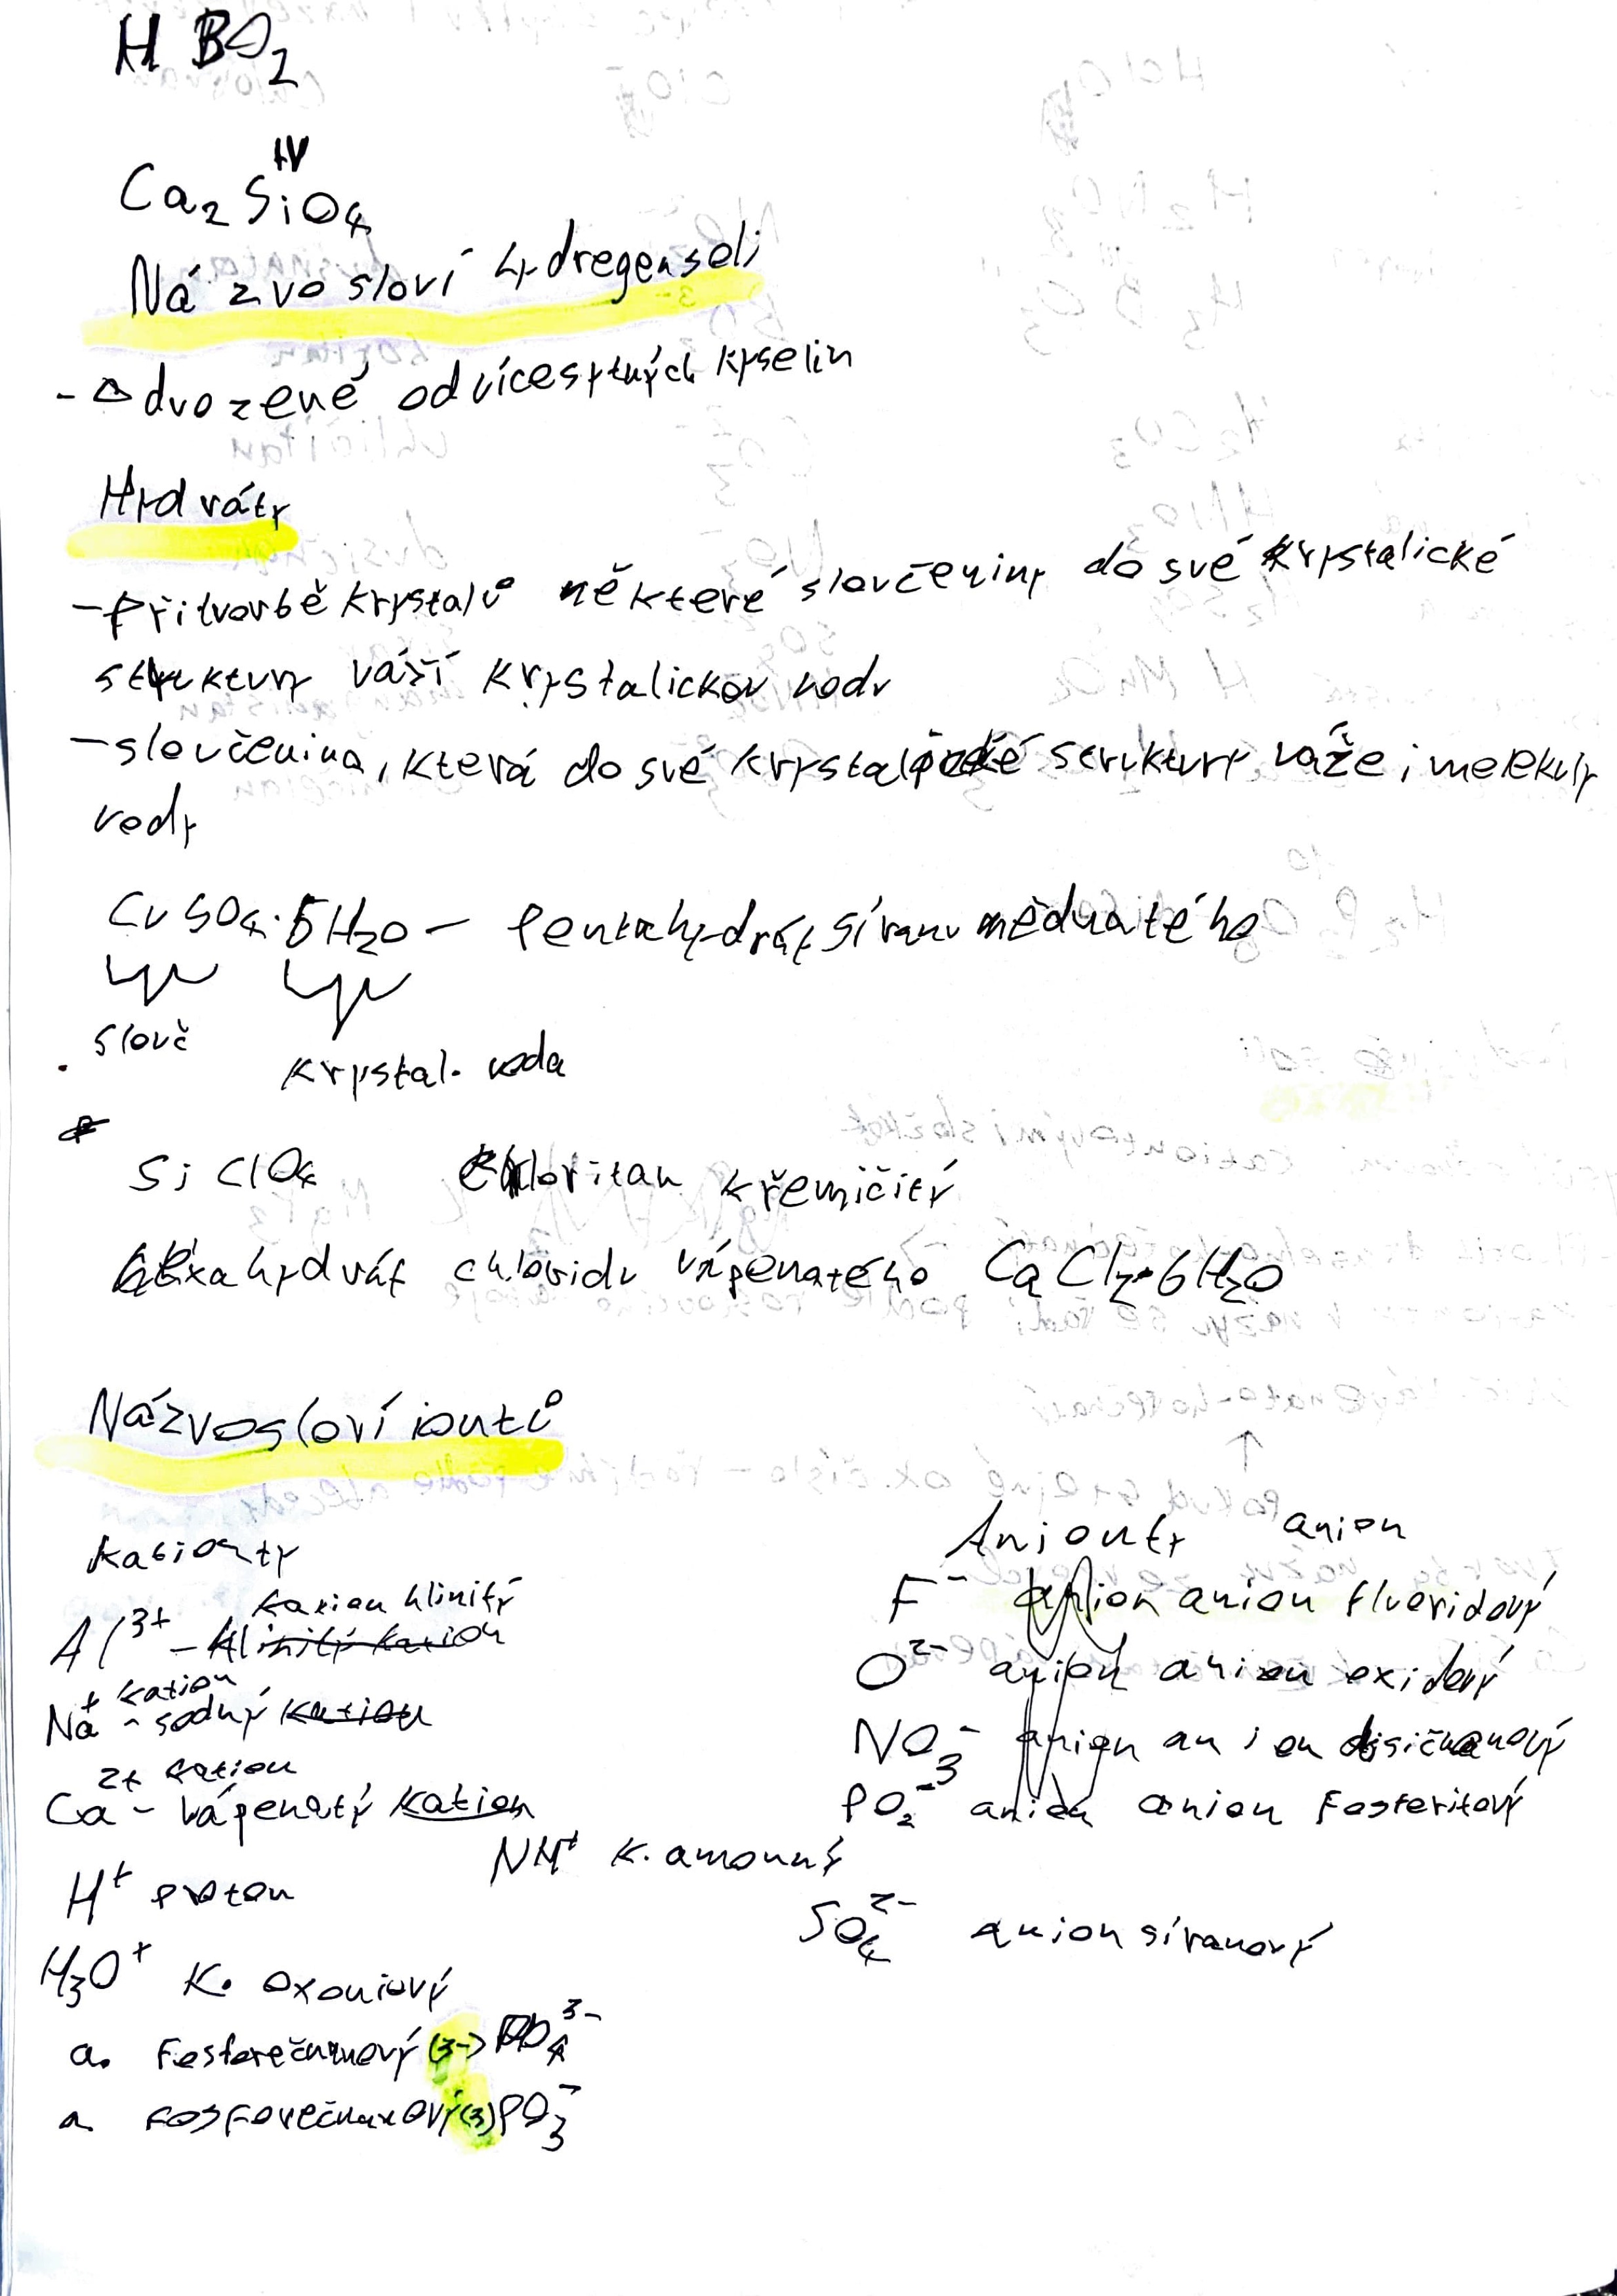 HBO₂
IV
Ca₂SiO₄
Názvosloví hydrogensoli
- Odvozené od vícesytných kyselin
Hydráty
- při tvorbě krystalů některé sloučeniny do své krystalické
struktury váží krystalickou vodu
- sloučenina, která do své krystalické struktury váže i molekuly
vody
CuSO₄·5H₂O – Pentahydrát síranu měďnatého
slouč
krystal. voda
SiClO₄ chloritan křemičitý
hexahydrát chloridu vápenatého CaCl₂·6H₂O
Názvosloví iontů
Kationty
kation hlinitý
Al³⁺ – hlinitý kation
kation
Na⁺ – sodný kation
kation
Ca²⁺ – vápenatý kation
H⁺ proton
NH⁺ k. amonný
H₃O⁺ K. oxoniový
a. fosforečnanový (3-) PO₄³⁻
a. fosforečnanový (3) PO₃⁻
Anionty anion
F⁻ anion anion fluoridový
O²⁻ anion anion oxidový
NO₃⁻ anion anion dusičnanový
PO₂⁻ anion anion Fosforitový
SO₄²⁻ anion síranový